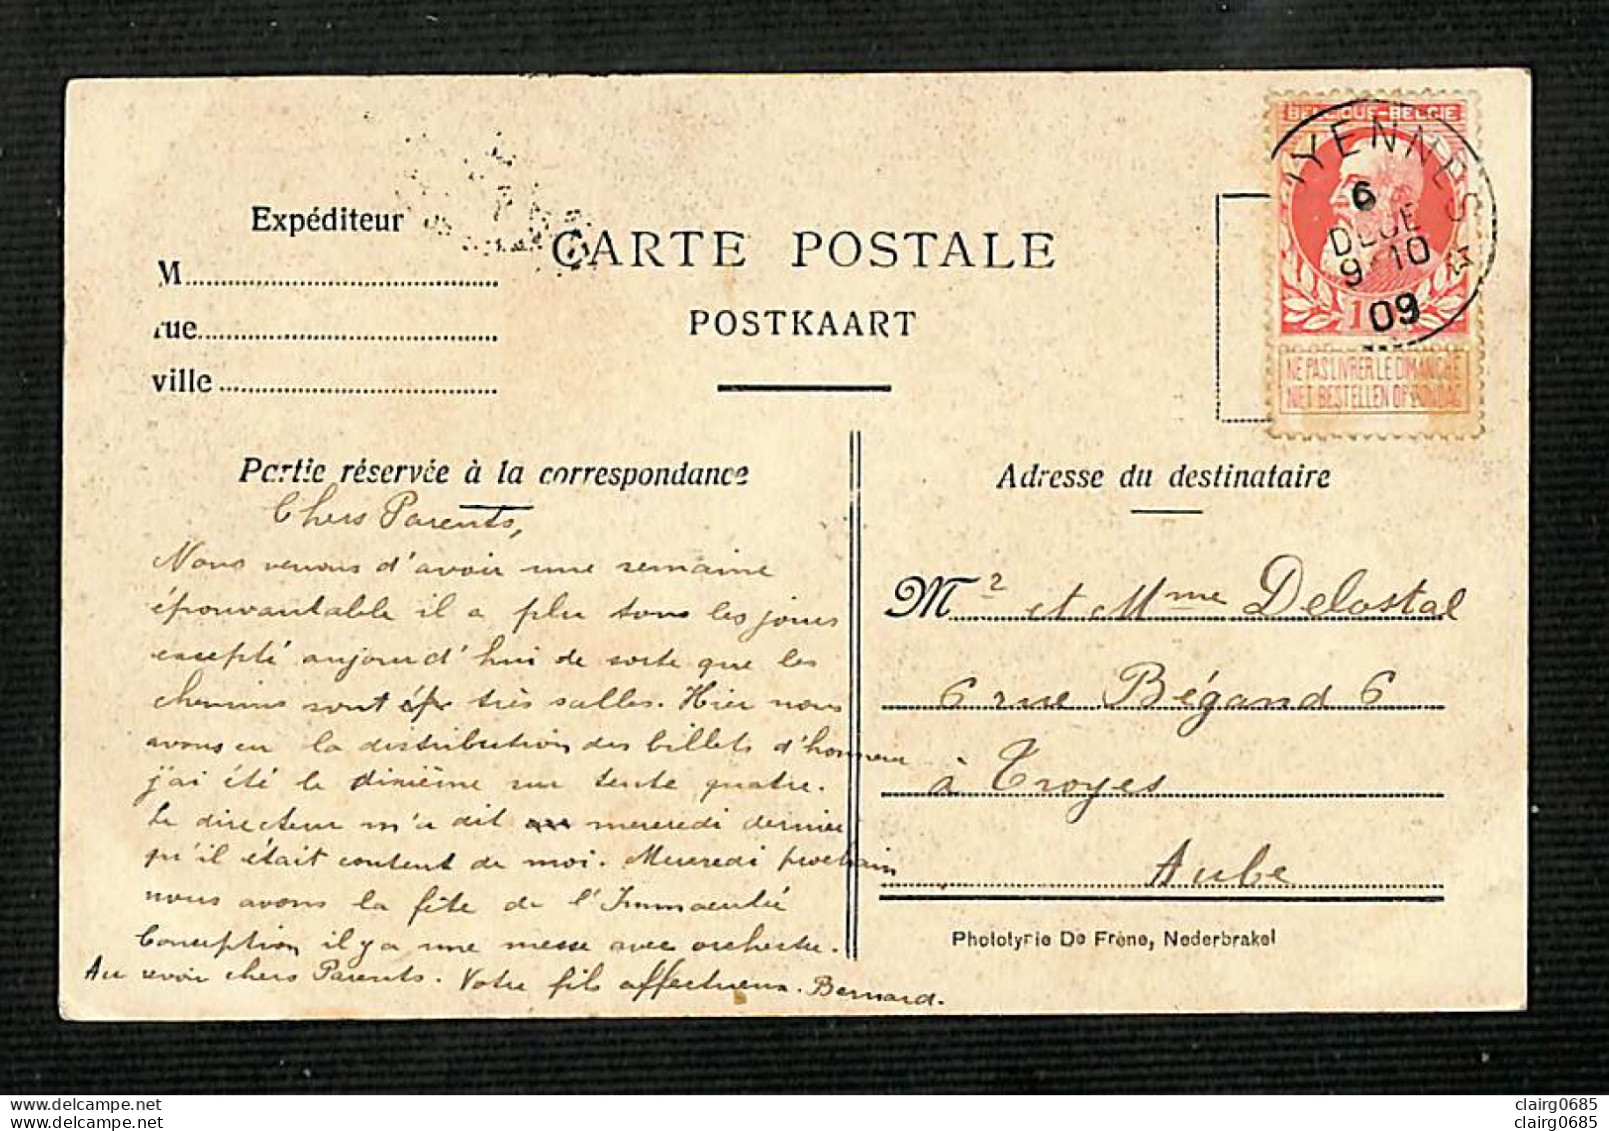 BELGIQUE-BELGIE
YENNES
6
DECE
9-10
09
1
NE PAS LIVRER LE DIMANCHE
NIET BESTELLEN OP ZONDAG
Expéditeur
M
rue
ville
CARTE POSTALE
POSTKAART
Partie réservée à la correspondance
Chers Parents,
Nous venons d'avoir une semaine
épouvantable il a plu tous les jours
excepté aujourd'hui de sorte que les
chemins sont très salles. Hier nous
avons eu la distribution des billets d'honneur
j'ai été le dixième sur trente quatre.
Le directeur m'a dit mercredi dernier
qu'il était content de moi. Mercredi prochain
nous avons la fête de l'Immaculée
Conception il y a une messe avec orchestre.
Au revoir chers Parents. Votre fils affectueux. Bernard.
Adresse du destinataire
Mr et Mme Delostal
6 rue Bégand 6
à Troyes
Aube
Phototypie De Frène, Nederbrakel
clairg0685
clairg0685
clairg0685
clairg0685